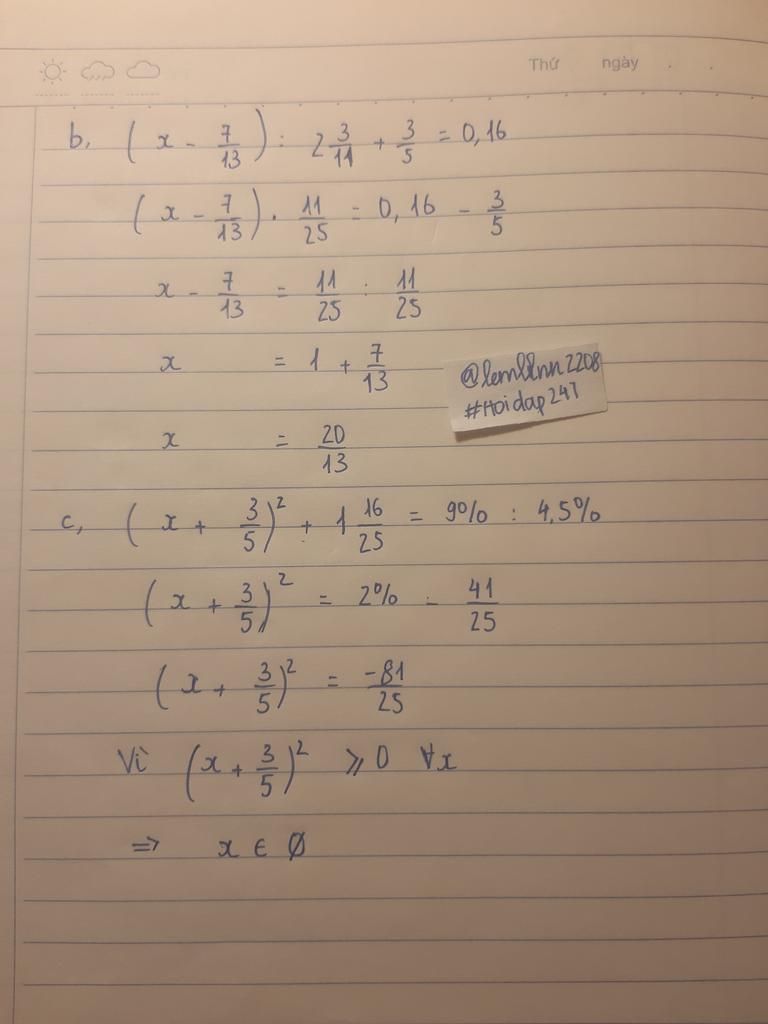 Thứ ngày . .
b, ( x - 7/13 ) : 2 3/11 + 3/5 = 0,16
( x - 7/13 ) . 11/25 = 0,16 - 3/5
x - 7/13 = 11/25 : 11/25
x = 1 + 7/13
@lemllnn2208
#Hoidap247
x = 20/13
c, ( x + 3/5 )² + 1 16/25 = 9% : 4,5%
( x + 3/5 )² = 2% - 41/25
( x + 3/5 )² = -81/25
Vì ( x + 3/5 )² ⩾ 0 ∀x
=> x ∈ Ø